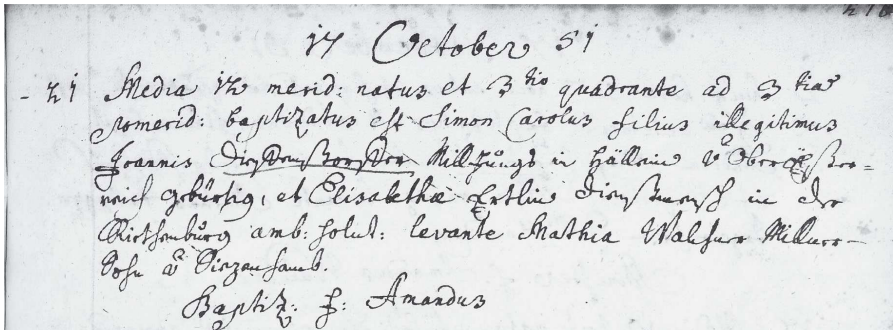 17 October 51
21 Media 12 merid: natus et 3tio quadrante ad 3tia
pomerid: baptizatus est Simon Carolus filius illegitimus
Joannis Millhůngs in Hällein ů Oberößer=
reich gebürtig, et Elisabetha Ertlin Dienstmensch in der
Riethenburg amb: solut: levante Mathia Walsner Millner-
Sohn ů
Baptiz: P: Amandus